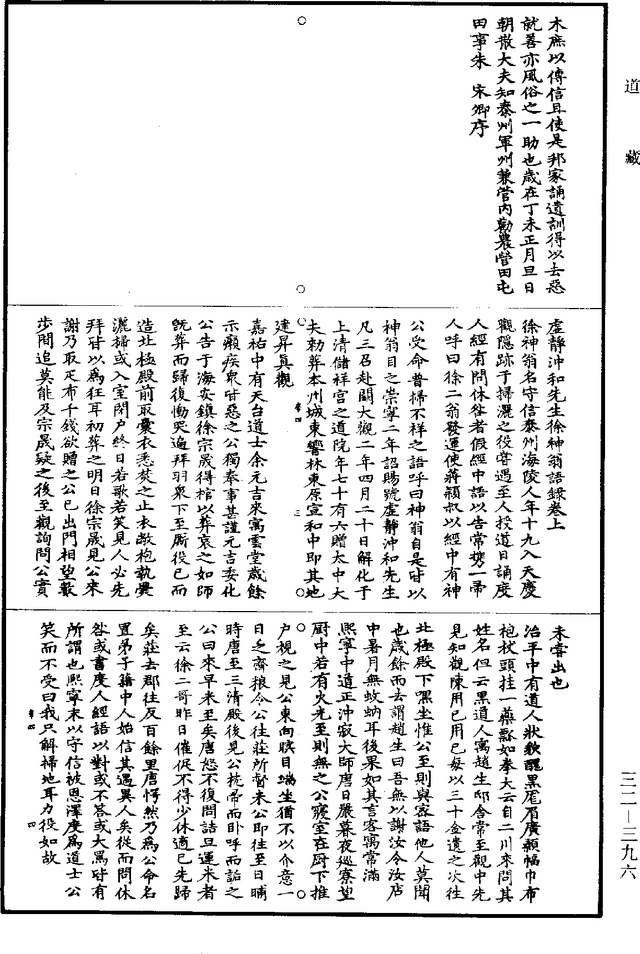 道藏
木庶以傳信且使是邦家誦遺訓得以去惡
就善亦風俗之一助也歲在丁未正月旦日
朝散大夫知泰州軍州兼管內勸農營田屯
田事朱　宋卿序
虛靜沖和先生徐神翁語錄卷上
徐神翁名守信泰州海陵人年十九入天慶
觀隱跡于掃灑之役嘗遇至人授道日誦度
人經有問休咎者假經中語以告常攜一帚
人呼曰徐二翁發運使蔣穎叔以經中有神
公受命普掃不祥之語呼曰神翁自是皆以
神翁目之崇寧二年詔賜號虛靜沖和先生
凡三召赴闕大觀二年四月二十日解化于
上清儲祥宮之道院年七十有六贈太中大
夫勑葬本州城東響林東原宣和中即其地
建昇真觀
嘉祐中有天台道士余元吉來寓雲堂歲餘
示癩疾衆皆惡之公獨奉事甚謹元吉委化
公告于海安鎮徐宗晟得棺以葬哀之如師
既葬而歸復慟哭遍拜羽衆下至廝役已而
造北極殿前取囊衣悉焚之止衣敝袍執糞
灑掃或入室閉戶終日若歌若笑見人必先
拜皆以為狂耳初葬之明日徐宗晟見公來
謝乃取疋布千錢欲贈之公已出門相望數
步間追莫能及宗晟疑之後至觀詢問公實
未嘗出也
治平中有道人狀貌醜黑厖眉廣顙幅巾布
袍杖頭挂一藥瓢如拳大云自二川來問其
姓名但云黑道人寓趙生邸舍常至觀中先
見知觀陳用已用已每以三十金遺之次往
北極殿下嘿坐惟公至則與客語他人莫聞
也歲餘而去謂趙生曰吾無以謝汝令汝店
中暑月無蚊蚋耳後果如其言客寓常滿
熙寧中道正沖寂大師唐日嚴暮夜巡寮望
廚中若有火光至則無之公寢室在廚下推
戶視之見公東向瞑目端坐猶不以介意一
日乏齋粮令公往莊所督米公即往至日晡
時唐至三清殿後見公枕帚而卧呼而詰之
公曰來早米至矣唐怒不復問詰旦運米者
至云徐二哥昨日催促不得少休適已先歸
矣莊去郡往反百餘里唐愕然乃為公命名
置弟子籍中人始信其遇異人矣從而問休
咎或書度人經語以對或不答或大罵皆有
所謂也熙寧末以守信被恩澤度為道士公
笑而不受曰我只解掃地耳力役如故
三二—三九六